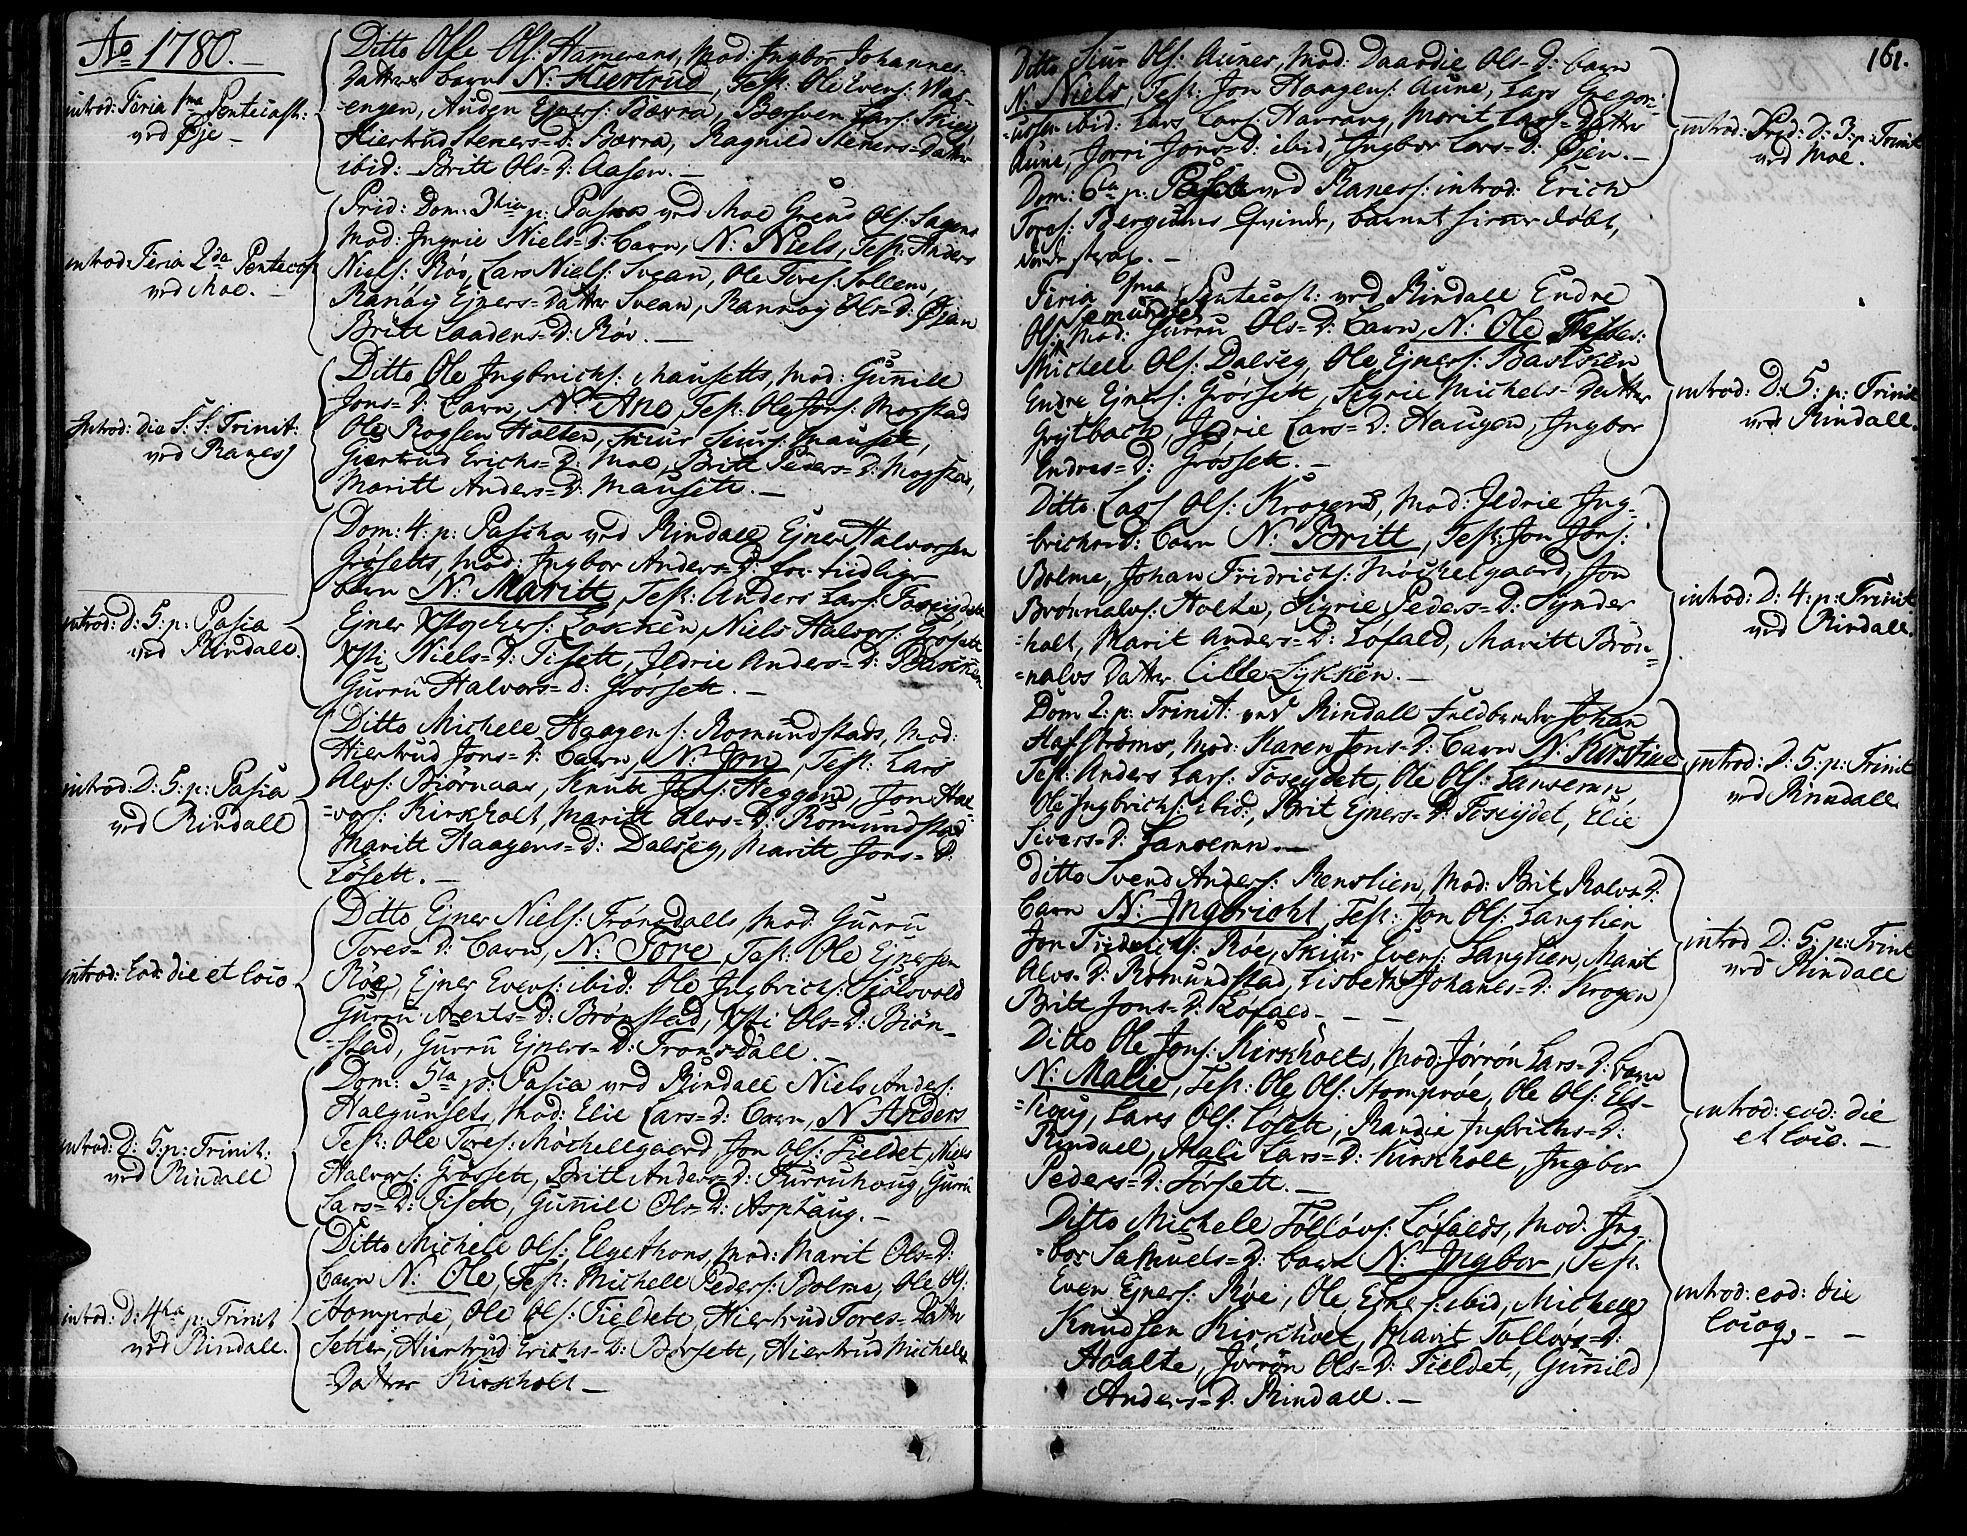 Ao 1780.
introd: Feria 1ma Pentecost:
ved Øje
Ditto Ole Ols: Hamerans, Mod: Ingbor Johannes-
Datter barn N: Hiertrud, Test: Ole Evens: Was-
engen, Auden Ejners: Bærra, Bersven Lars: Skiei
Hiertrud Steners=D: Bærra, Ragnild Steners=Datter
ibid: Britt Ols=D: Aasen.
introd: Feria 2da Pentecost
ved Moe.
Prid: Dom: 3tia p: Pascha ved Moe Greus Ols: Sagens
Mod: Ingrie Niels=D: barn, N: Niels, Test: Anders
Niels: Røv, Lars Niels: Svean, Ole Tores: Sollem,
Ranøy Ejners=Datter Svean, Rannøy Ols=D: Øjan
Britt Laadens=D: Røv.
Introd: die S:S: Trinit:
ved Ranes
Ditto Ole Ingbrichs: Mausetts, Mod: Guñill
Jons=D: barn, N: Ane, Test: Ole Jors: Mogstad
Ole Rogsen Halten, Siur Siurs: Mauset,
Giertrud Erichs=D: Moe, Britt Peders=D: Mogstad,
Maritt Anders=D: Mausett.
introd: D: 5: p: Pasca
ved Rindall.
Dom: 4: p: Pascha ved Rindall Ejner Halvorsen
Grøsetts, Mod: Ingbor Anders=D: for tidlig
barn N: Maritt, Test: Anders Lars: Foseijdet
Ejner Xstophers: Løcken, Niels Halvors: Grøsett
Xsti Niels=D: Tisett, Ildrie Anders=D: Baschen
Gurru Halvors=D: Grøsett.
introd: D: 5: p: Pasca
ved Rindall
Ditto Michell Haagens: Romundstads, Mod:
Hiertrud Jons=D: barn, N: Jon, Test: Lars
Alvs: Biørnaas, Knut Jons: Heggem, Jon Hal-
=vors: Kirsholt, Maritt Alvs=D: Romundstad
Maritt Haagens=D: Dalseg, Maritt Jons=D:
Løsett.
introd: eod: die et loco
Ditto Ejner Niels: Trønsdalls, Mod: Gurru
Tores=D: barn, N: Tore, Test: Ole Ejnersen
Røe, Ejner Evens: ibid: Ole Ingbrichs: Siølsvold
Gurru Arents=D: Brønstad, Xsti Ols=D: Biøn-
=stad, Gurru Ejners=D: Trønsdall.
introd: D: 5: p: Trinit:
ved Rindall
Dom: 5ta p: Pasca ved Rindall Niels Anders:
Halgunsets, Mod: Elie Lars=D: barn, N: Anders
Test: Ole Tores: Møchellgaard Jon Ols: Fieldet, Niels
Halvors: Grøsett, Britt Anders=D: Furruhoug, Gurru
Lars=D: Tisett, Guñill Ols=D: Asphaug.
introd: D: 4ta p: Trinit
ved Rindall.
Ditto Michell Ols: Elgethons, Mod: Marit Ols=D:
barn N: Ole, Test: Michell Peders: Bolme, Ole Ols:
Stomprøe, Ole Ols: Fieldett, Hiertrud Tores=Datter
Setter, Hiertrud Erichs=D: Børsett, Hiertrud Michels
Datter Kirsholt
161.
Ditto Siur Ols: Aunes, Mod: Daardie Ols=D: barn
N: Niels, Test: Jon Haagens: Aune, Lars Gregori-
=ussen ibid: Lars Lars: Havrang, Morit Lars=Datter
Aune, Jorri Jons=D: ibid, Ingbor Lars=D: Øjen.
introd: Prid: D: 3: p: Trinit
ved Moe.
Dom: 6ta p: Pasca ved Raness: introd: Erich
Tores: Bergiums Qvinde, barnet hiemme døbt,
døde strax.
Feria 1ma Pentecost: ved Rindall Endre
Ols: Semundset Mod: Gurru Ols=D: barn, N: Ole Test:
Michell Ols: Dalseg, Ole Ejners: Baschen
Endre Ejners: Grøsett, Segrie Michels-Datter
Grytbach, Ildrie Lars=D: Haugen, Ingbor
Endres=D: Grøsett.
introd: D: 5: p: Trinit
ved Rindall.
Ditto Lars Ols: Krogens, Mod: Ildrie Ing-
=brichs=D: barn N: Britt, Test: Jon Jons:
Bolme, Johan Fridrichs: Møchelgaard, Jon
Brønnalvs: Holte, Sigrie Peders=D: Synder
=halt, Marit Anders=D: Løfald, Maritt Brøn-
=nalvs Datter Lille Lykken.
introd: D: 4: p: Trinit
ved Rindall.
Dom 2: p: Trinit: ved Rindall Feldbereder Johan
Hafstrøms, Mod: Karen Jons=D: barn N: Kirstine
Test: Anders Lars: Foseijdet, Ole Ols: Landsemn
Ole Ingbrichs: ibid:, Brit Ejners=D: Foseijdet, Elie
Sivers=D: Lansemn
introd: D: 5: p: Trinit
ved Rindall
ditto Svend Anders: Renslien, Mod: Brit Ralvs=D:
barn N: Ingbricht, Test: Jon Ols: Langlien
Jon Fridrichs: Røe, Skiur Evens: Langlien, Marit
Alvs=D: Romundstad, Lisbeth Johanes=D: Krogen
Britt Jons=D: Løfald
introd D: 5: p: Trinit
ved Rindall
Ditto Ole Jons: Kirsholts, Mod: Jørrøn Lars=D: barn
N: Malie, Test: Ole Ols: Stomprøe, Ole Ols: Els-
=houg, Lars Ols: Løsett, Randie Ingbrichs=D:
Rindall, Mali Lars=D: Kirsholt, Ingbor
Peders=D: Torsett.
introd: eod: die
et loco.
Ditto Michell Følløvs: Løfalds, Mod: Ing-
=bor Samuels=D: barn N: Ingbor, Test:
Even Ejners: Røe, Ole Ejners: ibid, Michell
Knudsen Kirsholt, Marit Følløvs=D:
Haalte, Jørrøn Ols=D: Fieldet, Guñild
Anders=D: Rindall.
introd: eod: die
locoq